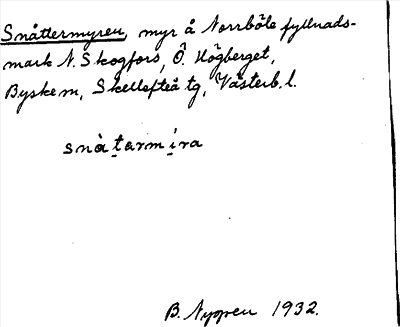 Snåttermyren, myr å Norrböle fyllnads-
mark N. Skogfors, Ö. Högberget,
Byske m, Skellefteå tg, Västerb. l.
snåtarmira
B. Nygren 1932.